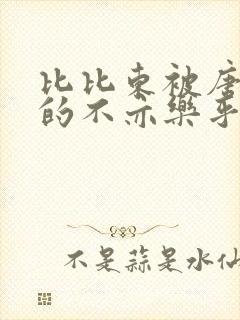 比比东被唐
的不亦乐乎
不是蒜是水仙